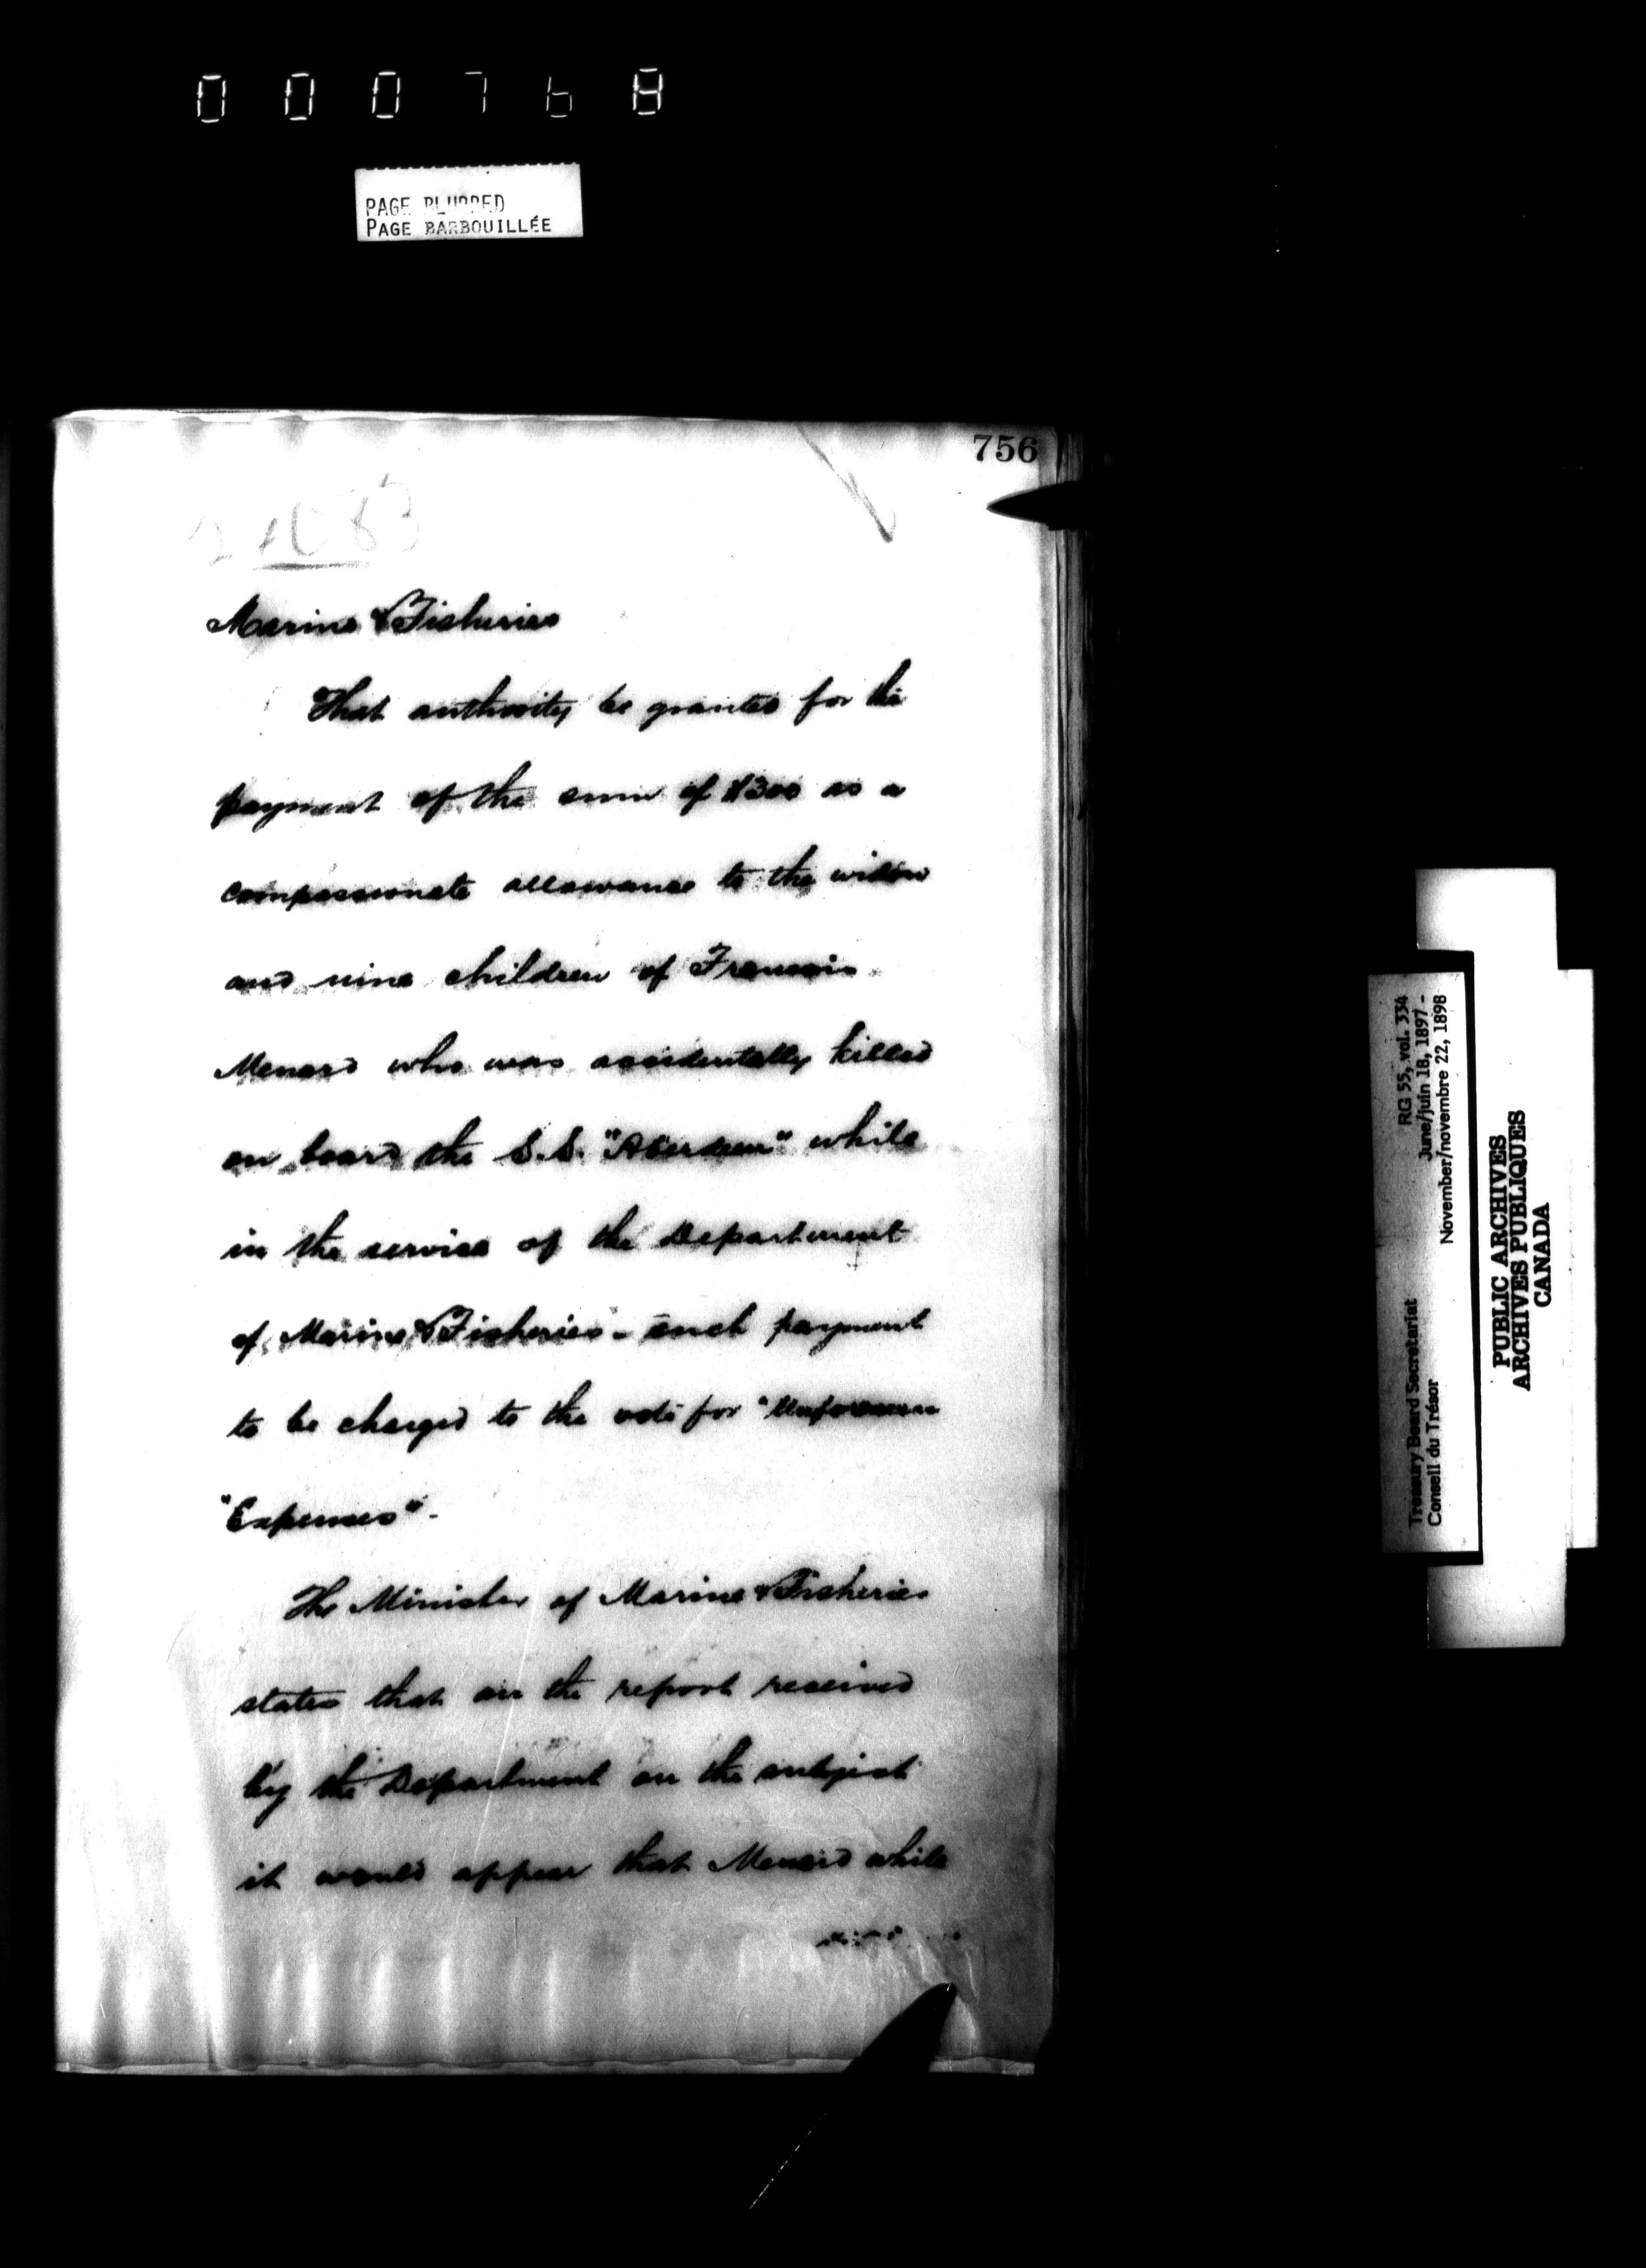 000768
PAGE BLURRED
PAGE BARBOUILLÉE
756
Marine & Fisheries
That authority be granted for the
payment of the sum of $300 as a
compassionate allowance to the widow
and nine children of Francois
Menard who was accidentally killed
on board the S.S. "Aberdeen" while
in the service of the Department
of Marine & Fisheries - such payment
to be charged to the vote for "Unforeseen
"Expenses" -
The Minister of Marine & Fisheries
states that on the report received
by the Department on the subject
it would appear that Menard while
Treasury Board Secretariat RG 55, vol. 334
Conseil du Trésor June/juin 18, 1897 -
November/novembre 22, 1898
PUBLIC ARCHIVES
ARCHIVES PUBLIQUES
CANADA